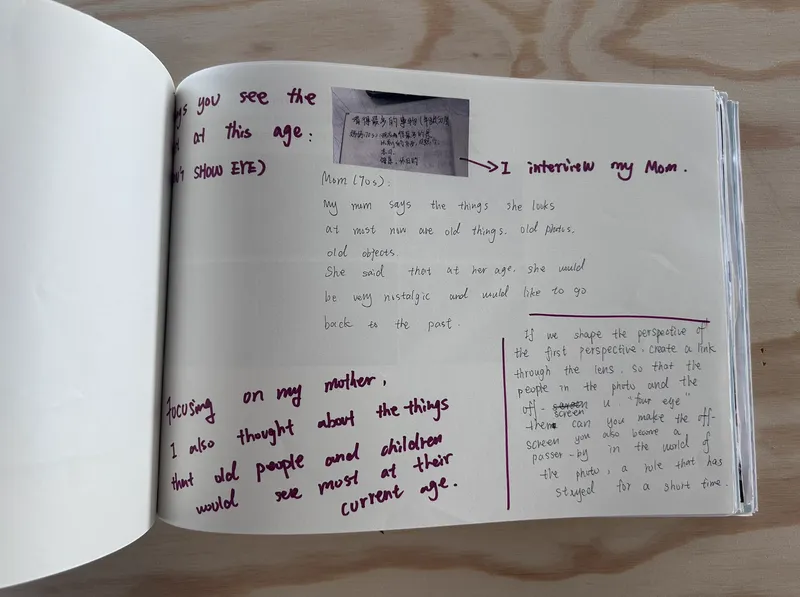 you see the
at this age:
SHOW EYE)
看得最多的事物(年龄
老照片
→ I interview my Mom.
Mom (70s):
My mum says the things she looks
at most now are old things. old photos,
old objects.
She said that at her age, she would
be very nostalgic and would like to go
back to the past.
Focusing on my mother,
I also thought about the things
that old people and children
would see most at their
current age.
If we shape the perspective of
the first perspective, create a link
through the lens. so that the
people in the photo and the
off-screen u. "four eye"
them can you make the off-
screen you also become a
passer-by in the world of
the photo, a role that has
stayed for a short time.